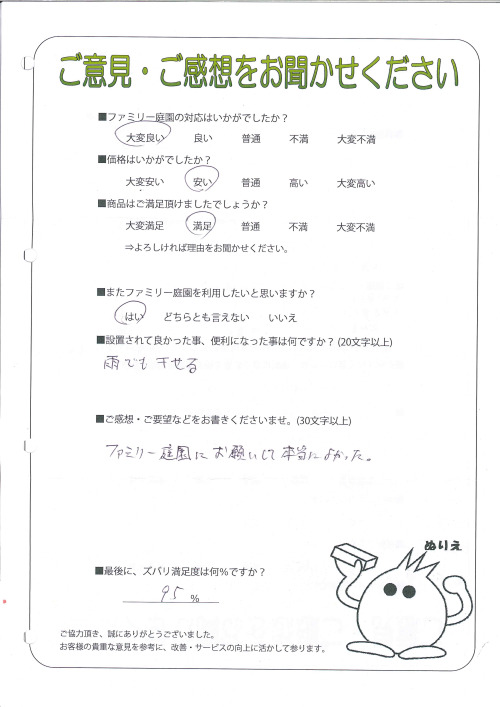 ご意見・ご感想をお聞かせください
■ファミリー庭園の対応はいかがでしたか？
大変良い　良い　普通　不満　大変不満
■価格はいかがでしたか？
大変安い　安い　普通　高い　大変高い
■商品はご満足頂けましたでしょうか？
大変満足　満足　普通　不満　大変不満
⇒よろしければ理由をお聞かせください。
■またファミリー庭園を利用したいと思いますか？
はい　どちらとも言えない　いいえ
■設置されて良かった事、便利になった事は何ですか？(20文字以上)
雨でも干せる
■ご感想・ご要望などをお書きくださいませ。(30文字以上)
ファミリー庭園にお願いして本当によかった。
ぬりえ
■最後に、ズバリ満足度は何％ですか？
95 %
ご協力頂き、誠にありがとうございました。
お客様の貴重な意見を参考に、改善・サービスの向上に活かして参ります。